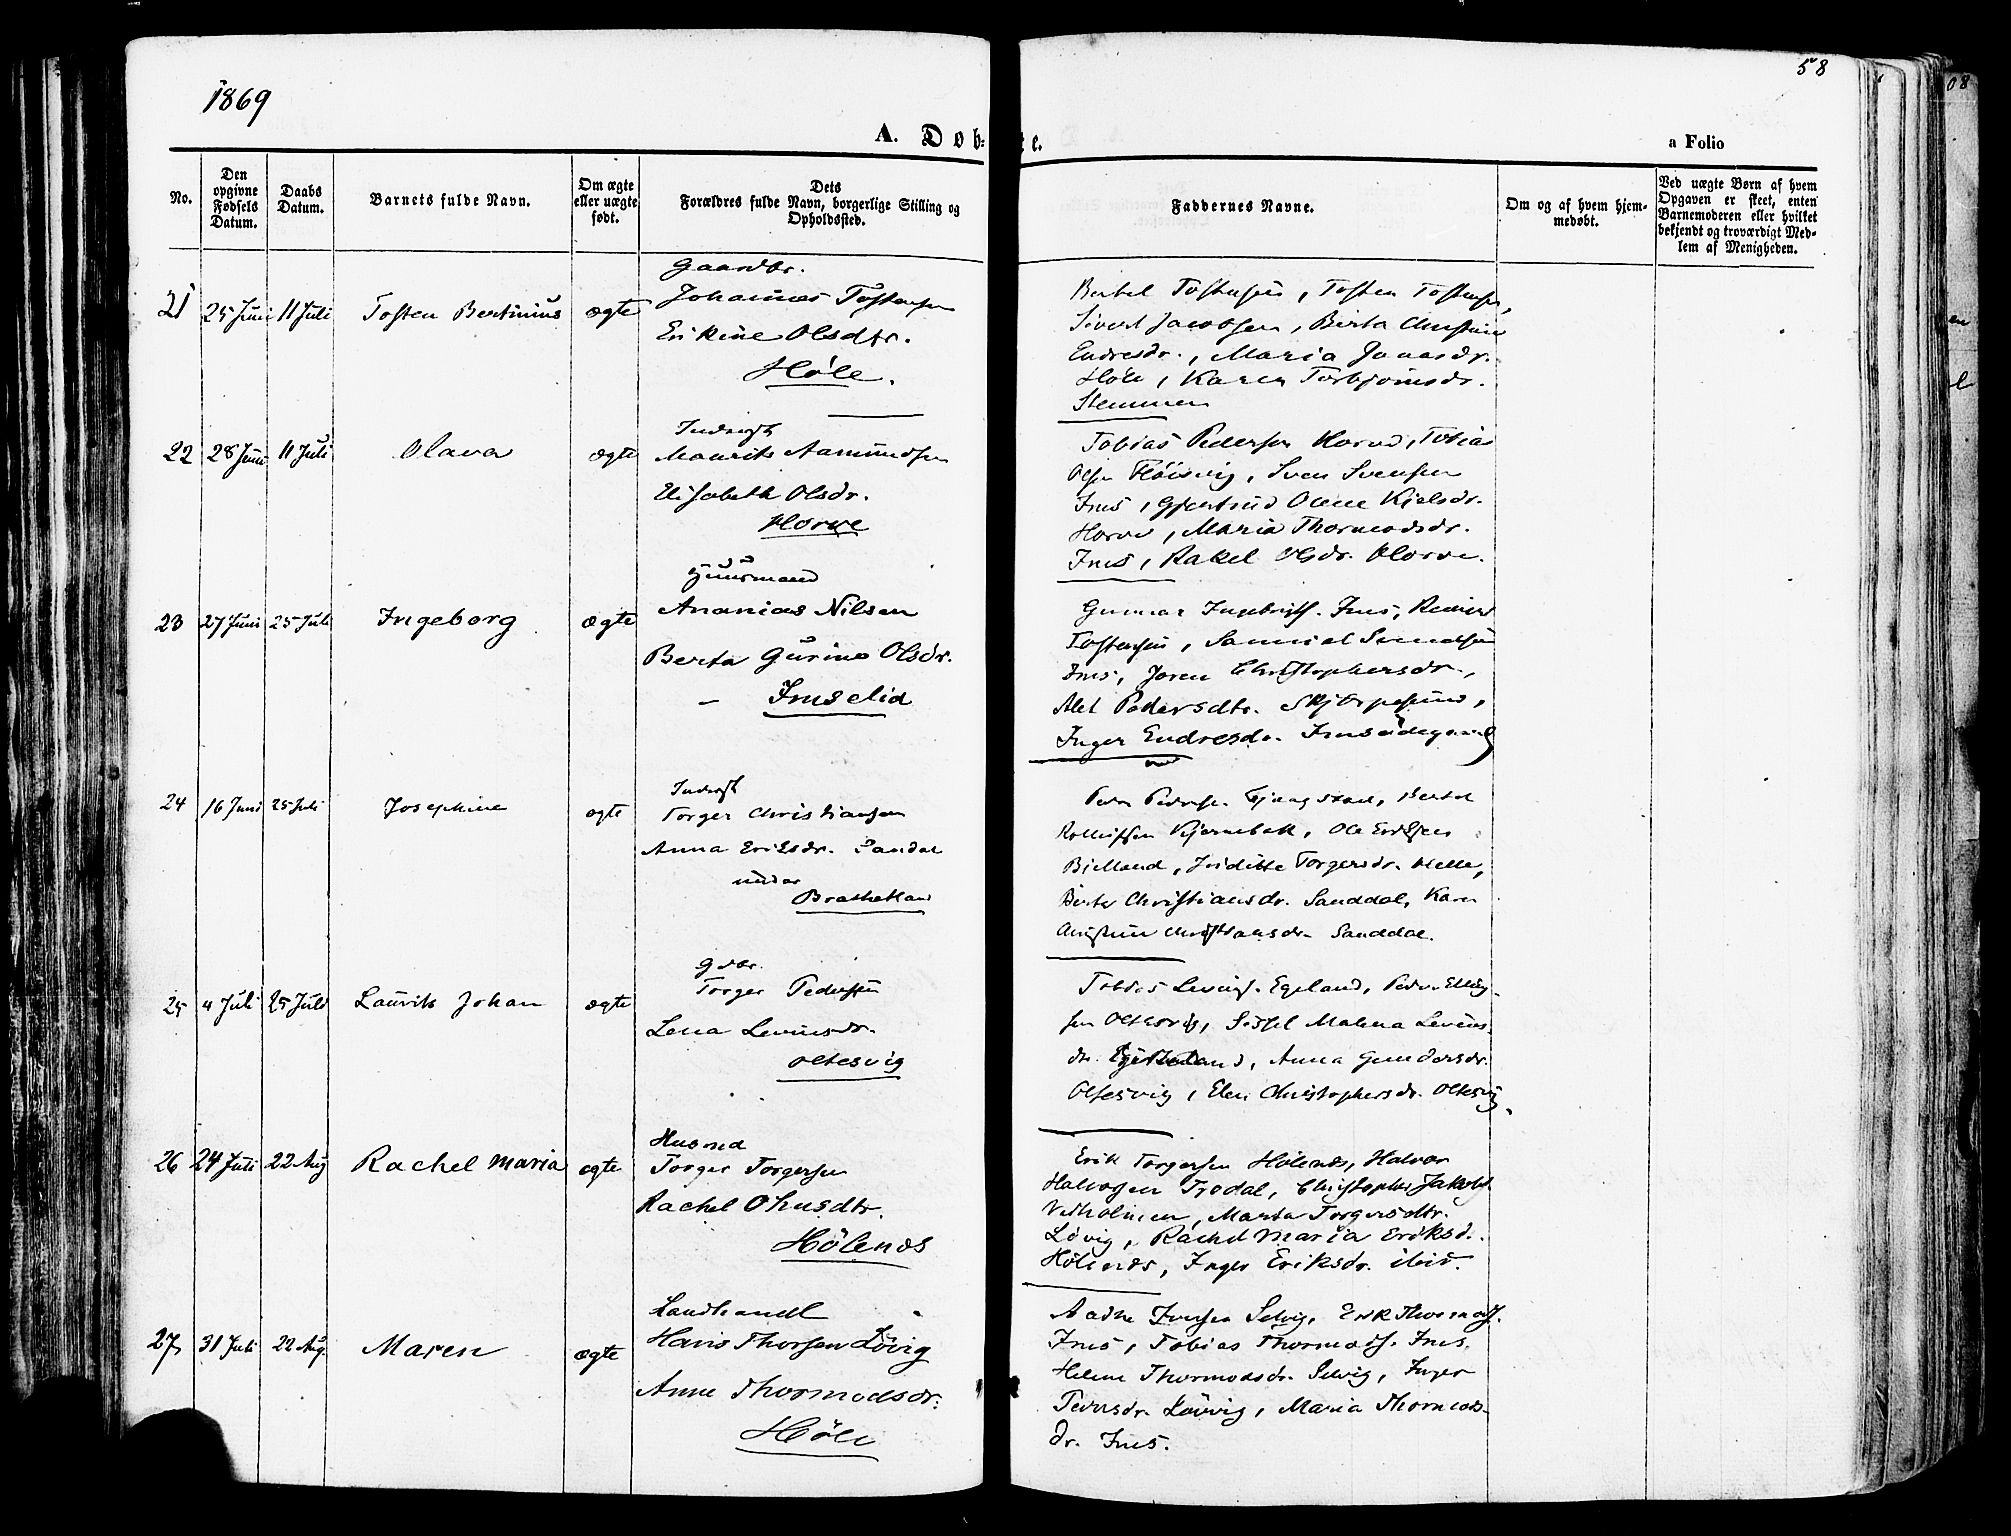 1869
58
A. Døb-te.
a Folio
No.
Den opgivne Fødsels Datum.
Daabs Datum.
Barnets fulde Navn.
Om ægte eller uægte født.
Dets Forældres fulde Navn, borgerlige Stilling og Opholdssted.
Faddernes Navne.
Om og af hvem hjemmedøbt.
Ved uægte Børn af hvem Opgaven er skeet, enten Barnemoderen eller hvilket bekjendt og troværdigt Medlem af Menigheden.
21 25 Juni 11 Juli Tosten Bertinius ægte
Gaardbr.
Johannes Tostensen
Erikine Olsdtr.
Høle.
Bertel Tostensen, Tosten Tostensen,
Sivert Jacobsen, Berta Christine
Endresdr., Maria Jonasdr.
Høle, Karen Torbjørnsdr.
Stemmen
22 28 Juni 11 Juli Olava ægte
Inderst
Maurits Aamundsen
Elisabeth Olsdr.
Horve
Tobias Pedersen Horve, Tobias
Olsen Fløisvig, Sven Svensen
Ims, Gjertrud Olene Kjelsdr.
Horve, Maria Thormodsdr.
Ims, Rakel Olsdr. Horve.
23 27 Juni 25 Juli Ingeborg ægte
Huusmand
Ananias Nilsen
Berta Gurine Olsdr.
- Imselid
Gunnar Ingebrigts. Ims,
Tostensen, Samuel
Ims, Joren Christophersdr.,
Alet Pedersdtr.
Inger Endresdr. Imsødegaard
24 16 Juni 25 Juli Josephine ægte
Inderst
Torger Christiansen
Anna Eriksdr. Sandal
under
Bratheland
Peder Peders. Bertel
Ole Eriksen
Bjelland, Torgersdr. Helle,
Berta Christiansdr. Sanddal, Karen
Christine Christiansdr. Sanddal.
25 4 Juli 25 Juli Laurits Johan ægte
Gdbr.
Torger Pedersen
Lena Levinsdr.
Oltesvig
Tobias Levins. Egeland, Peder Elling-
sen Oltesvig, Sissel Malena Levins-
dr. Anna Gundersdr.
Oltesvig, Elen Christophersdr. Oltesvig.
26 24 Juli 22 Aug Rachel Maria ægte
Husmd
Torger Torgersen
Rachel Ohnsdtr.
Hølenæs
Erik Torgersen Hølenæs, Halvor
Halvorsen Trodal, Christopher Jakobs.
Vedholmen, Marta Torgersdtr.
Løvig, Rachel Maria Eriksd.
Hølenæs, Inger Eriksdr. ibid.
27 31 Juli 22 Aug. Maren ægte
Landhandl
Hans Thorsen Løvig
Anne Thormodsdr.
Høle
Aadne Iversen Selvig, Erik Thormods.
Ims, Tobias Thormods. Ims.
Helene Thormodsdr. Selvig, Inger
Pedersdr. Løvvig, Maria Thormods-
dr. Ims.